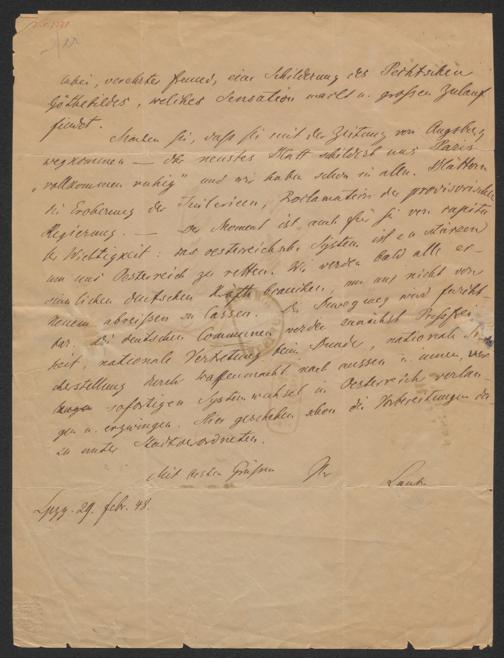 Anbei, verehrter Freund, eine Schilderung des Pechtschen
Göthebildes, welches Sensation macht u. großen Zulauf
findet.
Machen Sie, daß Sie mit der Zeitung von Augsburg
wegkommen — Ihr neustes Blatt schildert uns Paris
„vollkommen ruhig" und wir haben schon in allen Blättern
die Eroberung der Tuilerien, Proclamation der provisorischen
Regierung. — Der Moment ist auch für Sie von capita-
ler Wichtigkeit: das oesterreichische System ist zu stürzen
um uns Oesterreich zu retten. Wir werden bald alle er-
männlichen deutschen Kräfte brauchen, um uns nicht von
neuem abreißen zu lassen. Die Bewegung wird furcht-
bar. Die deutschen Communen werden zunächst Preßfrei-
heit, nationale Vertretung beim Bunde, nationale
durch Waffenmacht nach aussen u. innen,
sofortigen Systemwechsel in Oesterreich verlan-
gen u. erzwingen. Hier geschehen schon die Vorbereitungen da-
zu unter Stadtverordneten.
Mit besten Grüßen Ihr Laube
Lpzg. 29. febr. 48.